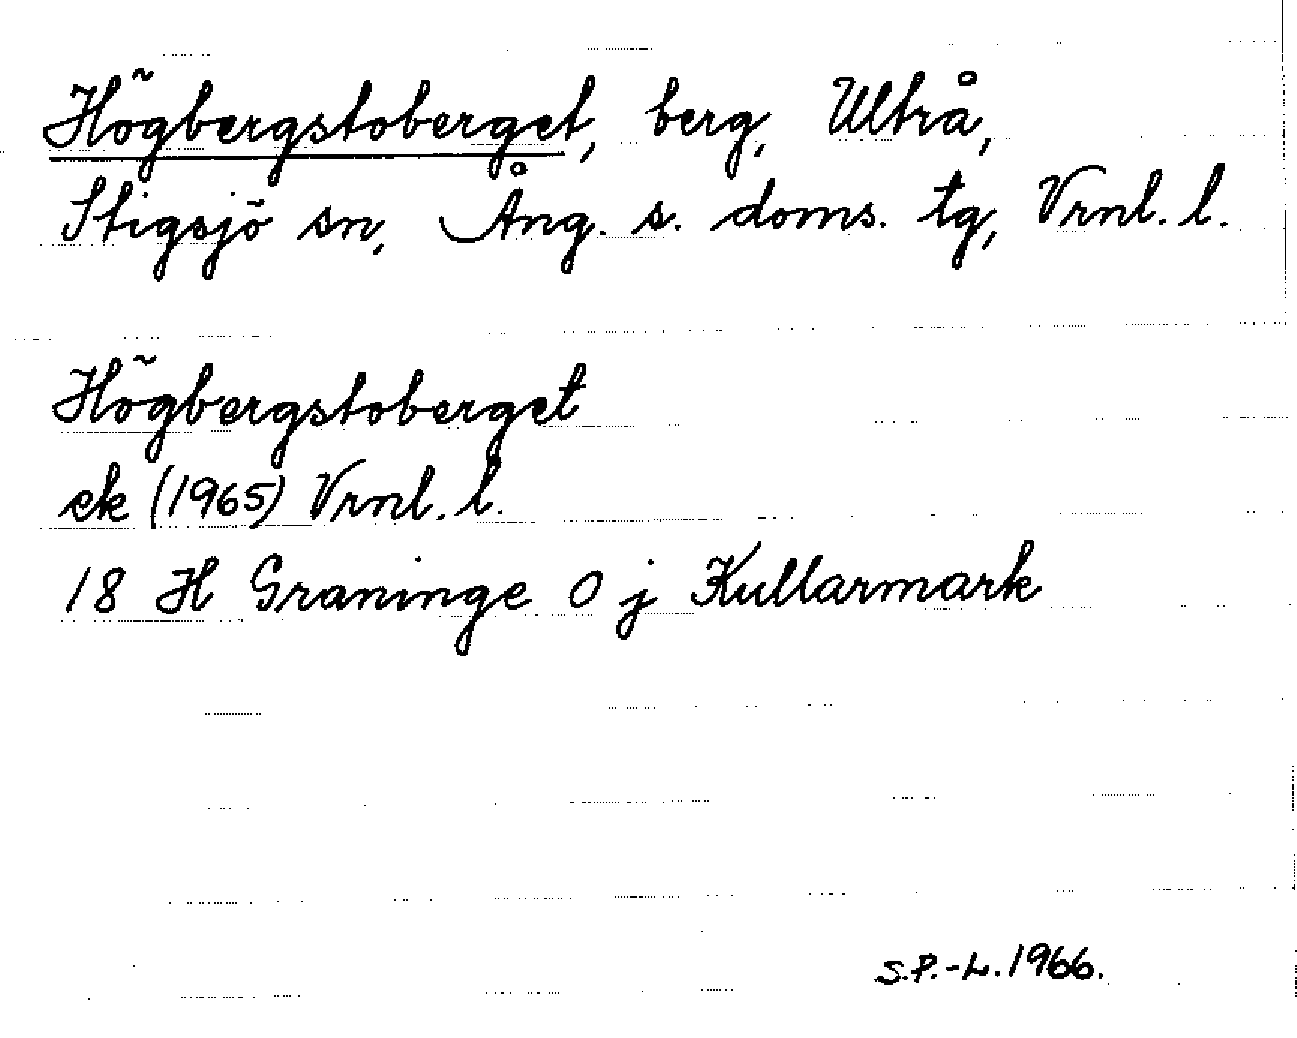 Högbergstoberget, berg, Ultrå,
Stigsjö sn, Ång. s. doms. tg, Vrnl. l.
Högbergstoberget
ek (1965) Vrnl. l.
18 H Graninge O j Kullarmark
S.P.-L. 1966.